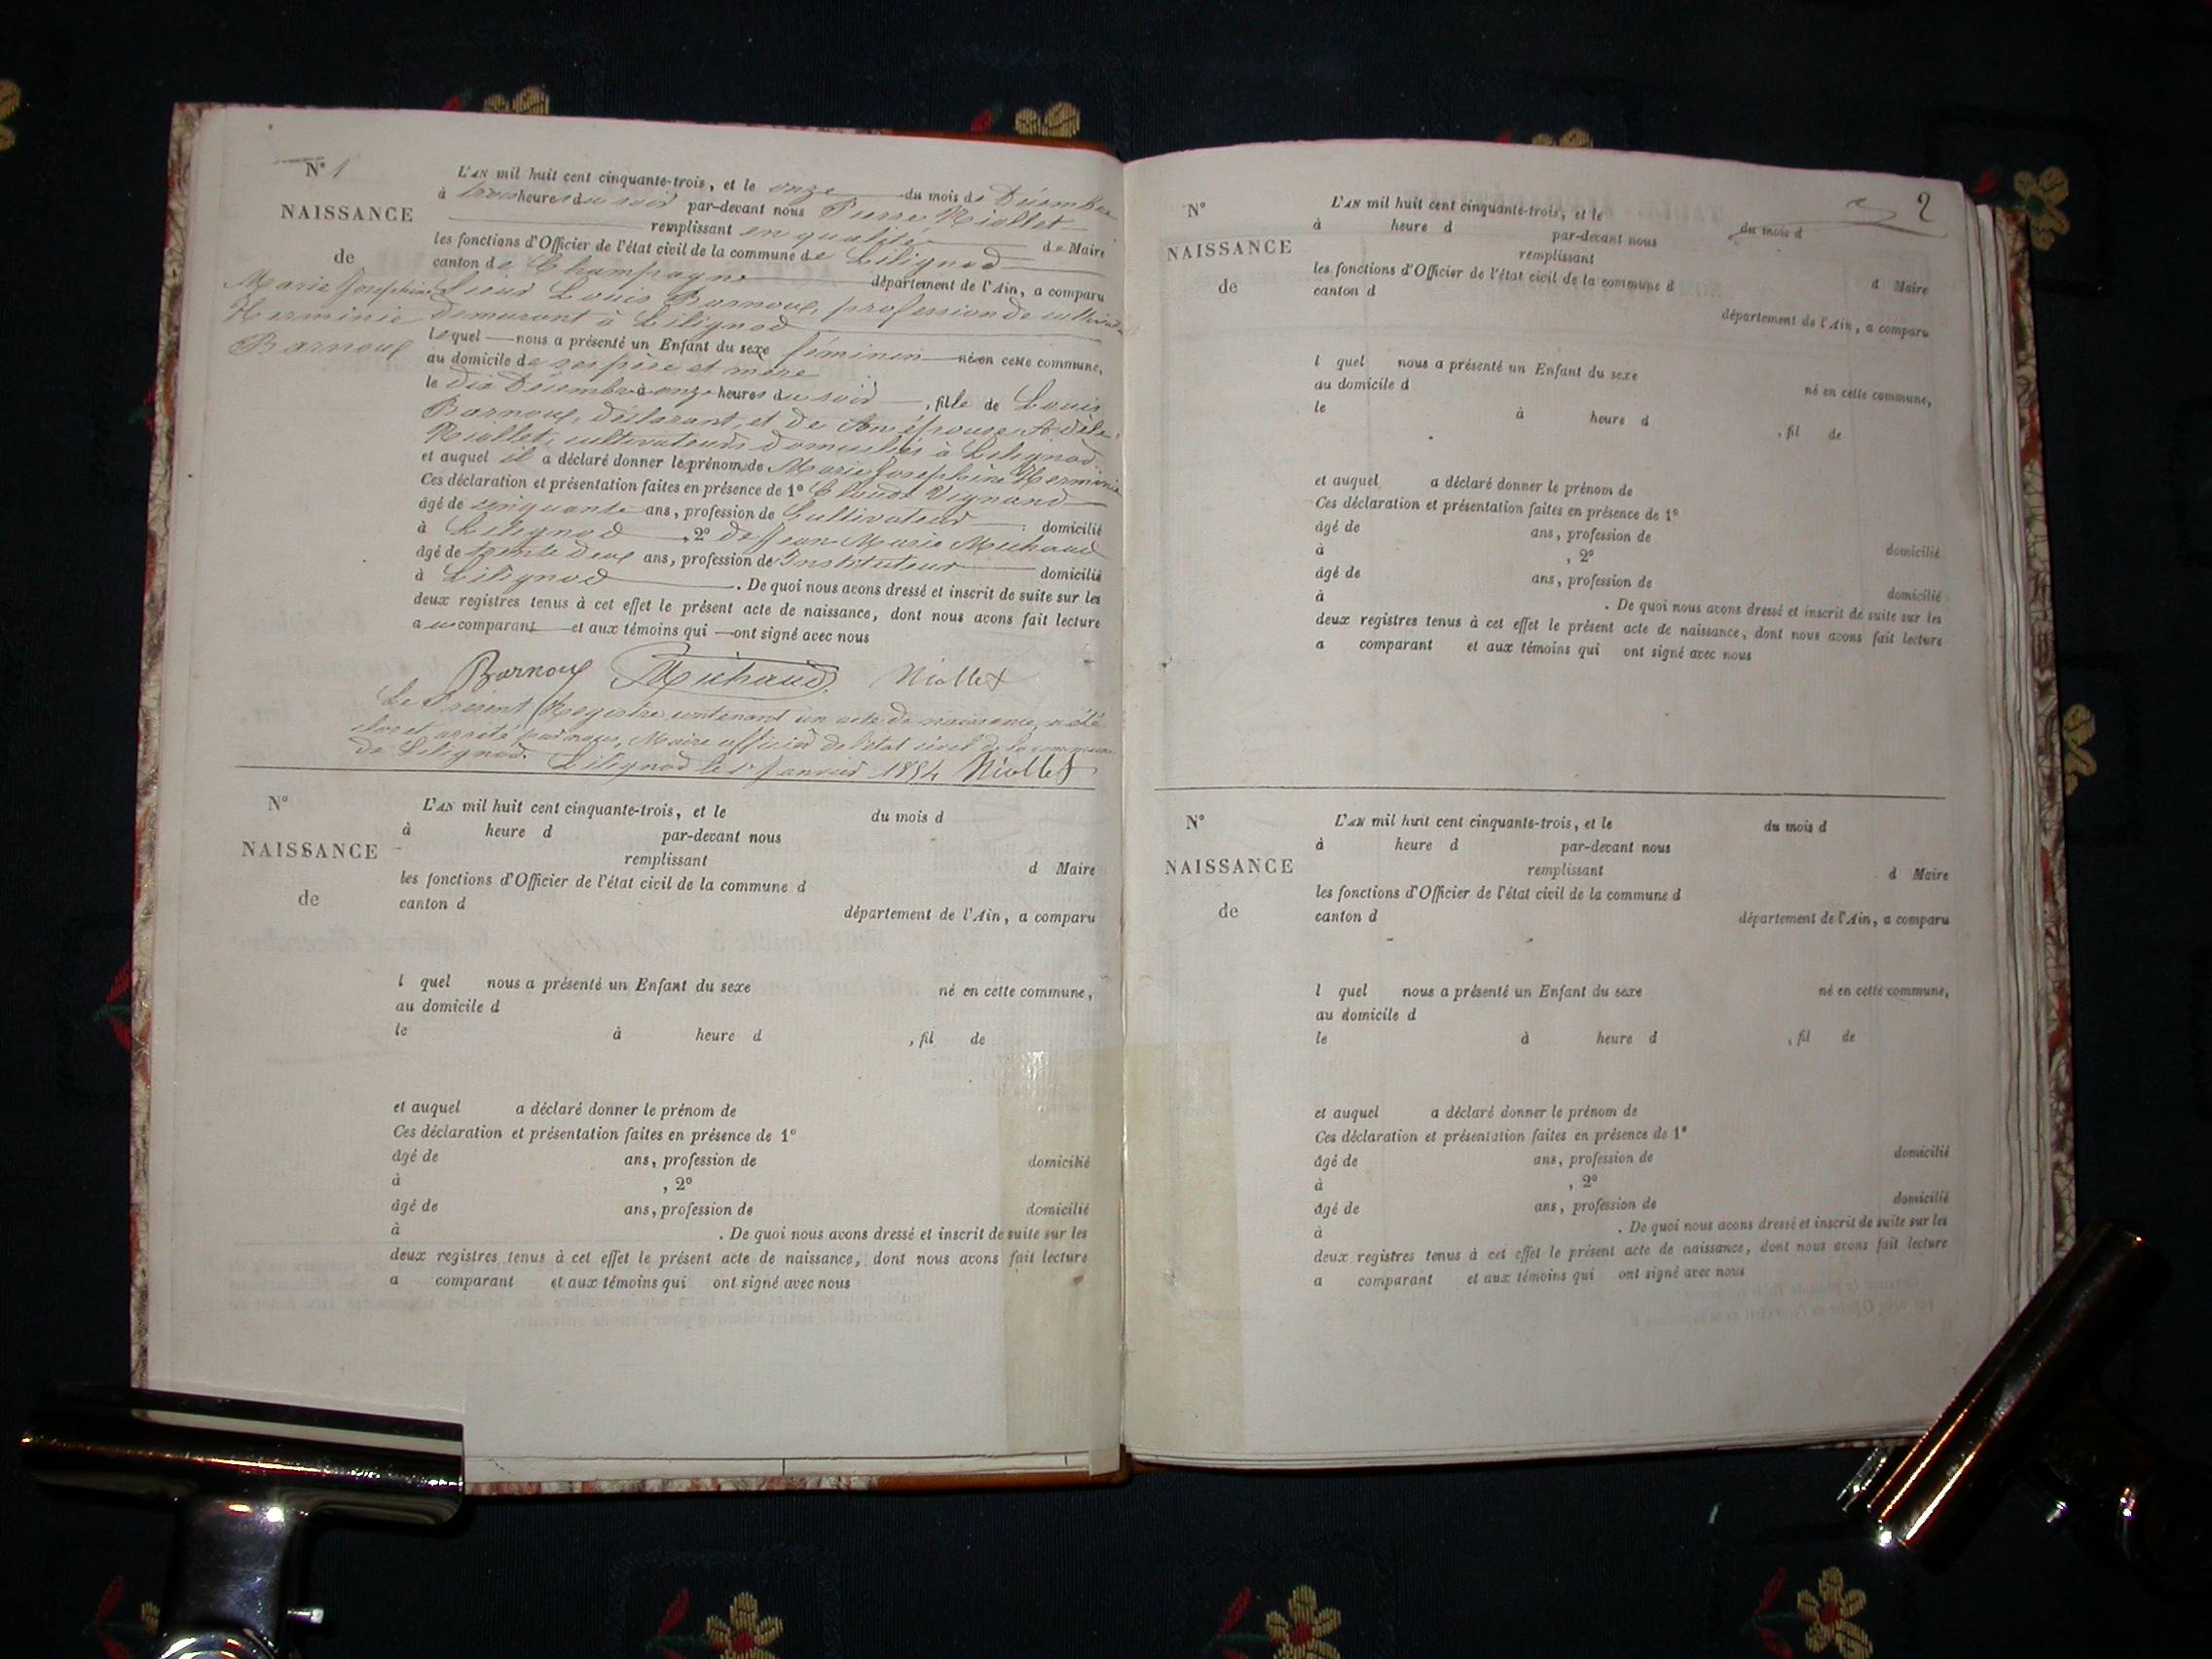 N° 1
NAISSANCE
de
Marie Josephine
Herminie
Barnoux
L'AN mil huit cent cinquante-trois, et le onze du mois de Décembre
à trois heures du soir par-devant nous Pierre Niollet
remplissant en qualité de Maire
les fonctions d'Officier de l'état civil de la commune de Lilignod
canton de Champagne département de l'Ain, a comparu
Sieur Louis Barnoux, profession de cultivateur
demeurant à Lilignod
lequel nous a présenté un Enfant du sexe féminin né en cette commune,
au domicile de ses père et mère
le dix Décembre à onze heures du soir, fille de Louis
Barnoux, déclarant, et de son épouse Adèle
Niollet, cultivateurs domiciliés à Lilignod
et auquel il a déclaré donner les prénoms de Marie Josephine Herminie
Ces déclaration et présentation faites en présence de 1° Claude Vignand
âgé de cinquante ans, profession de Cultivateur domicilié
à Lilignod, 2° de Jean Marie Michaud
âgé de trente deux ans, profession de Instituteur domicilié
à Lilignod. De quoi nous avons dressé et inscrit de suite sur les
deux registres tenus à cet effet le présent acte de naissance, dont nous avons fait lecture
au comparant et aux témoins qui ont signé avec nous
Barnoux Michaud Niollet
Le Présent Registre contenant un acte de naissance, a été
clos et arrêté par nous, Maire officier de l'état civil de la commune
de Lilignod. Lilignod le 1er Janvier 1854 Niollet
N°
NAISSANCE
de
L'AN mil huit cent cinquante-trois, et le du mois d
à heure d par-devant nous
remplissant d Maire
les fonctions d'Officier de l'état civil de la commune d
canton d département de l'Ain, a comparu
l quel nous a présenté un Enfant du sexe né en cette commune,
au domicile d
le à heure d , fil de
et auquel a déclaré donner le prénom de
Ces déclaration et présentation faites en présence de 1°
âgé de ans, profession de domicilié
à , 2°
âgé de ans, profession de domicilié
à . De quoi nous avons dressé et inscrit de suite sur les
deux registres tenus à cet effet le présent acte de naissance, dont nous avons fait lecture
a comparant et aux témoins qui ont signé avec nous
2
N°
NAISSANCE
de
L'AN mil huit cent cinquante-trois, et le du mois d
à heure d par-devant nous
remplissant d Maire
les fonctions d'Officier de l'état civil de la commune d
canton d département de l'Ain, a comparu
l quel nous a présenté un Enfant du sexe né en cette commune,
au domicile d
le à heure d , fil de
et auquel a déclaré donner le prénom de
Ces déclaration et présentation faites en présence de 1°
âgé de ans, profession de domicilié
à , 2°
âgé de ans, profession de domicilié
à . De quoi nous avons dressé et inscrit de suite sur les
deux registres tenus à cet effet le présent acte de naissance, dont nous avons fait lecture
a comparant et aux témoins qui ont signé avec nous
N°
NAISSANCE
de
L'AN mil huit cent cinquante-trois, et le du mois d
à heure d par-devant nous
remplissant d Maire
les fonctions d'Officier de l'état civil de la commune d
canton d département de l'Ain, a comparu
l quel nous a présenté un Enfant du sexe né en cette commune,
au domicile d
le à heure d , fil de
et auquel a déclaré donner le prénom de
Ces déclaration et présentation faites en présence de 1°
âgé de ans, profession de domicilié
à , 2°
âgé de ans, profession de domicilié
à . De quoi nous avons dressé et inscrit de suite sur les
deux registres tenus à cet effet le présent acte de naissance, dont nous avons fait lecture
a comparant et aux témoins qui ont signé avec nous